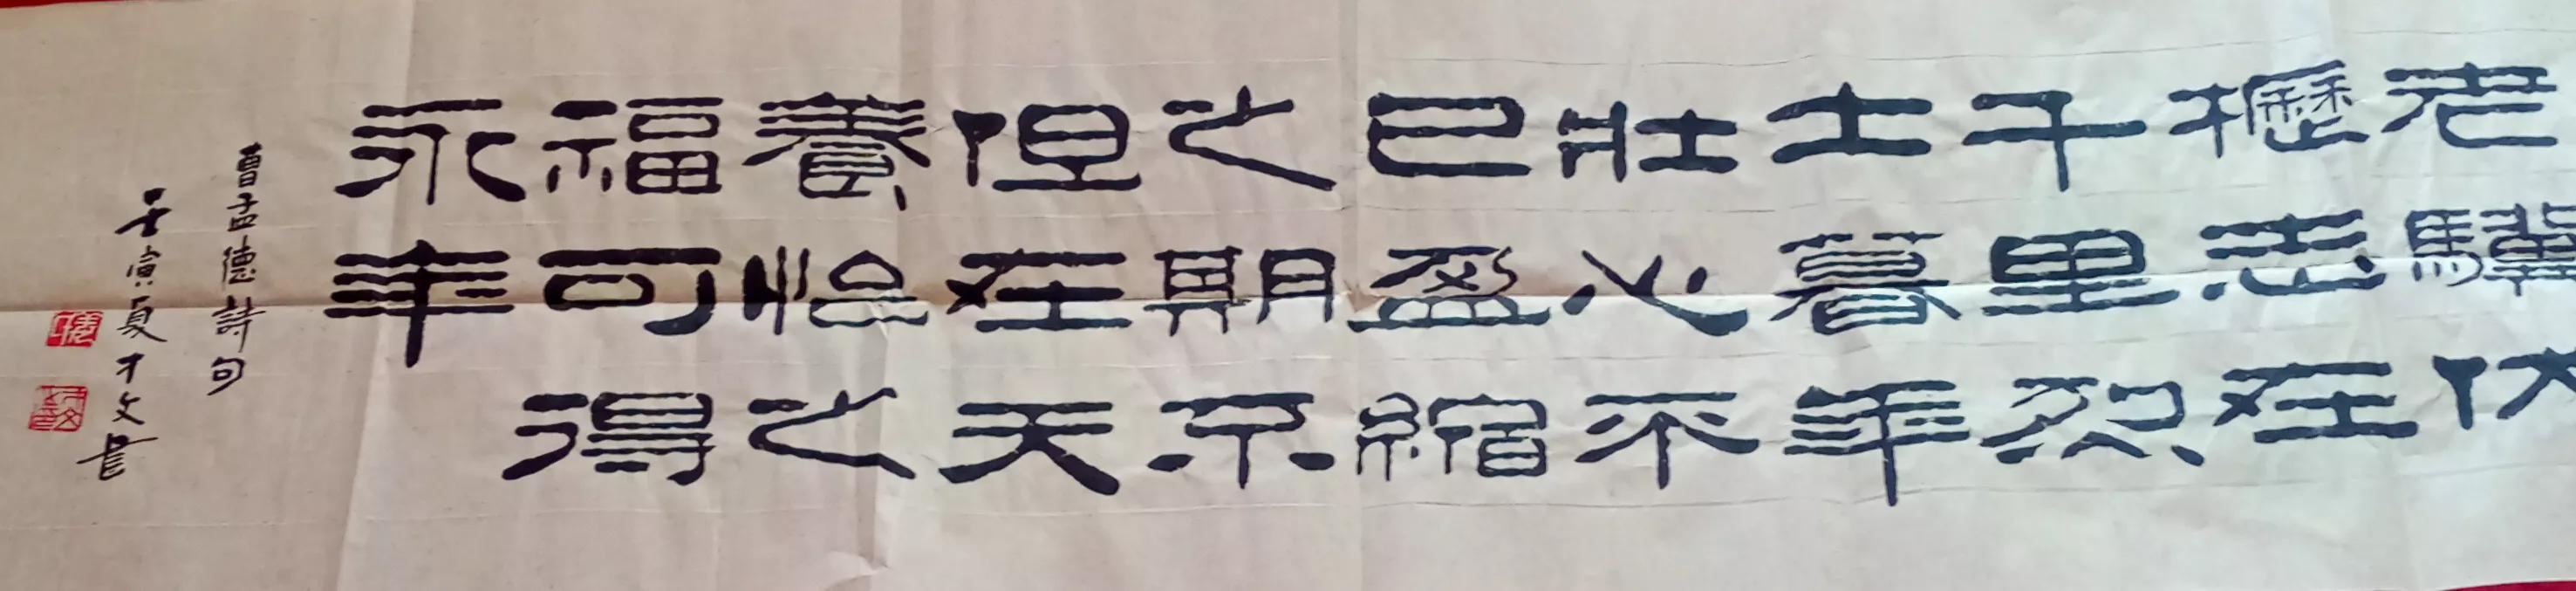 老驥伏
櫪志在
千里烈
士暮年
壯心不
已盈縮
之期不
但在天
養怡之
福可得
永年
曹孟德詩句
壬寅夏才文書